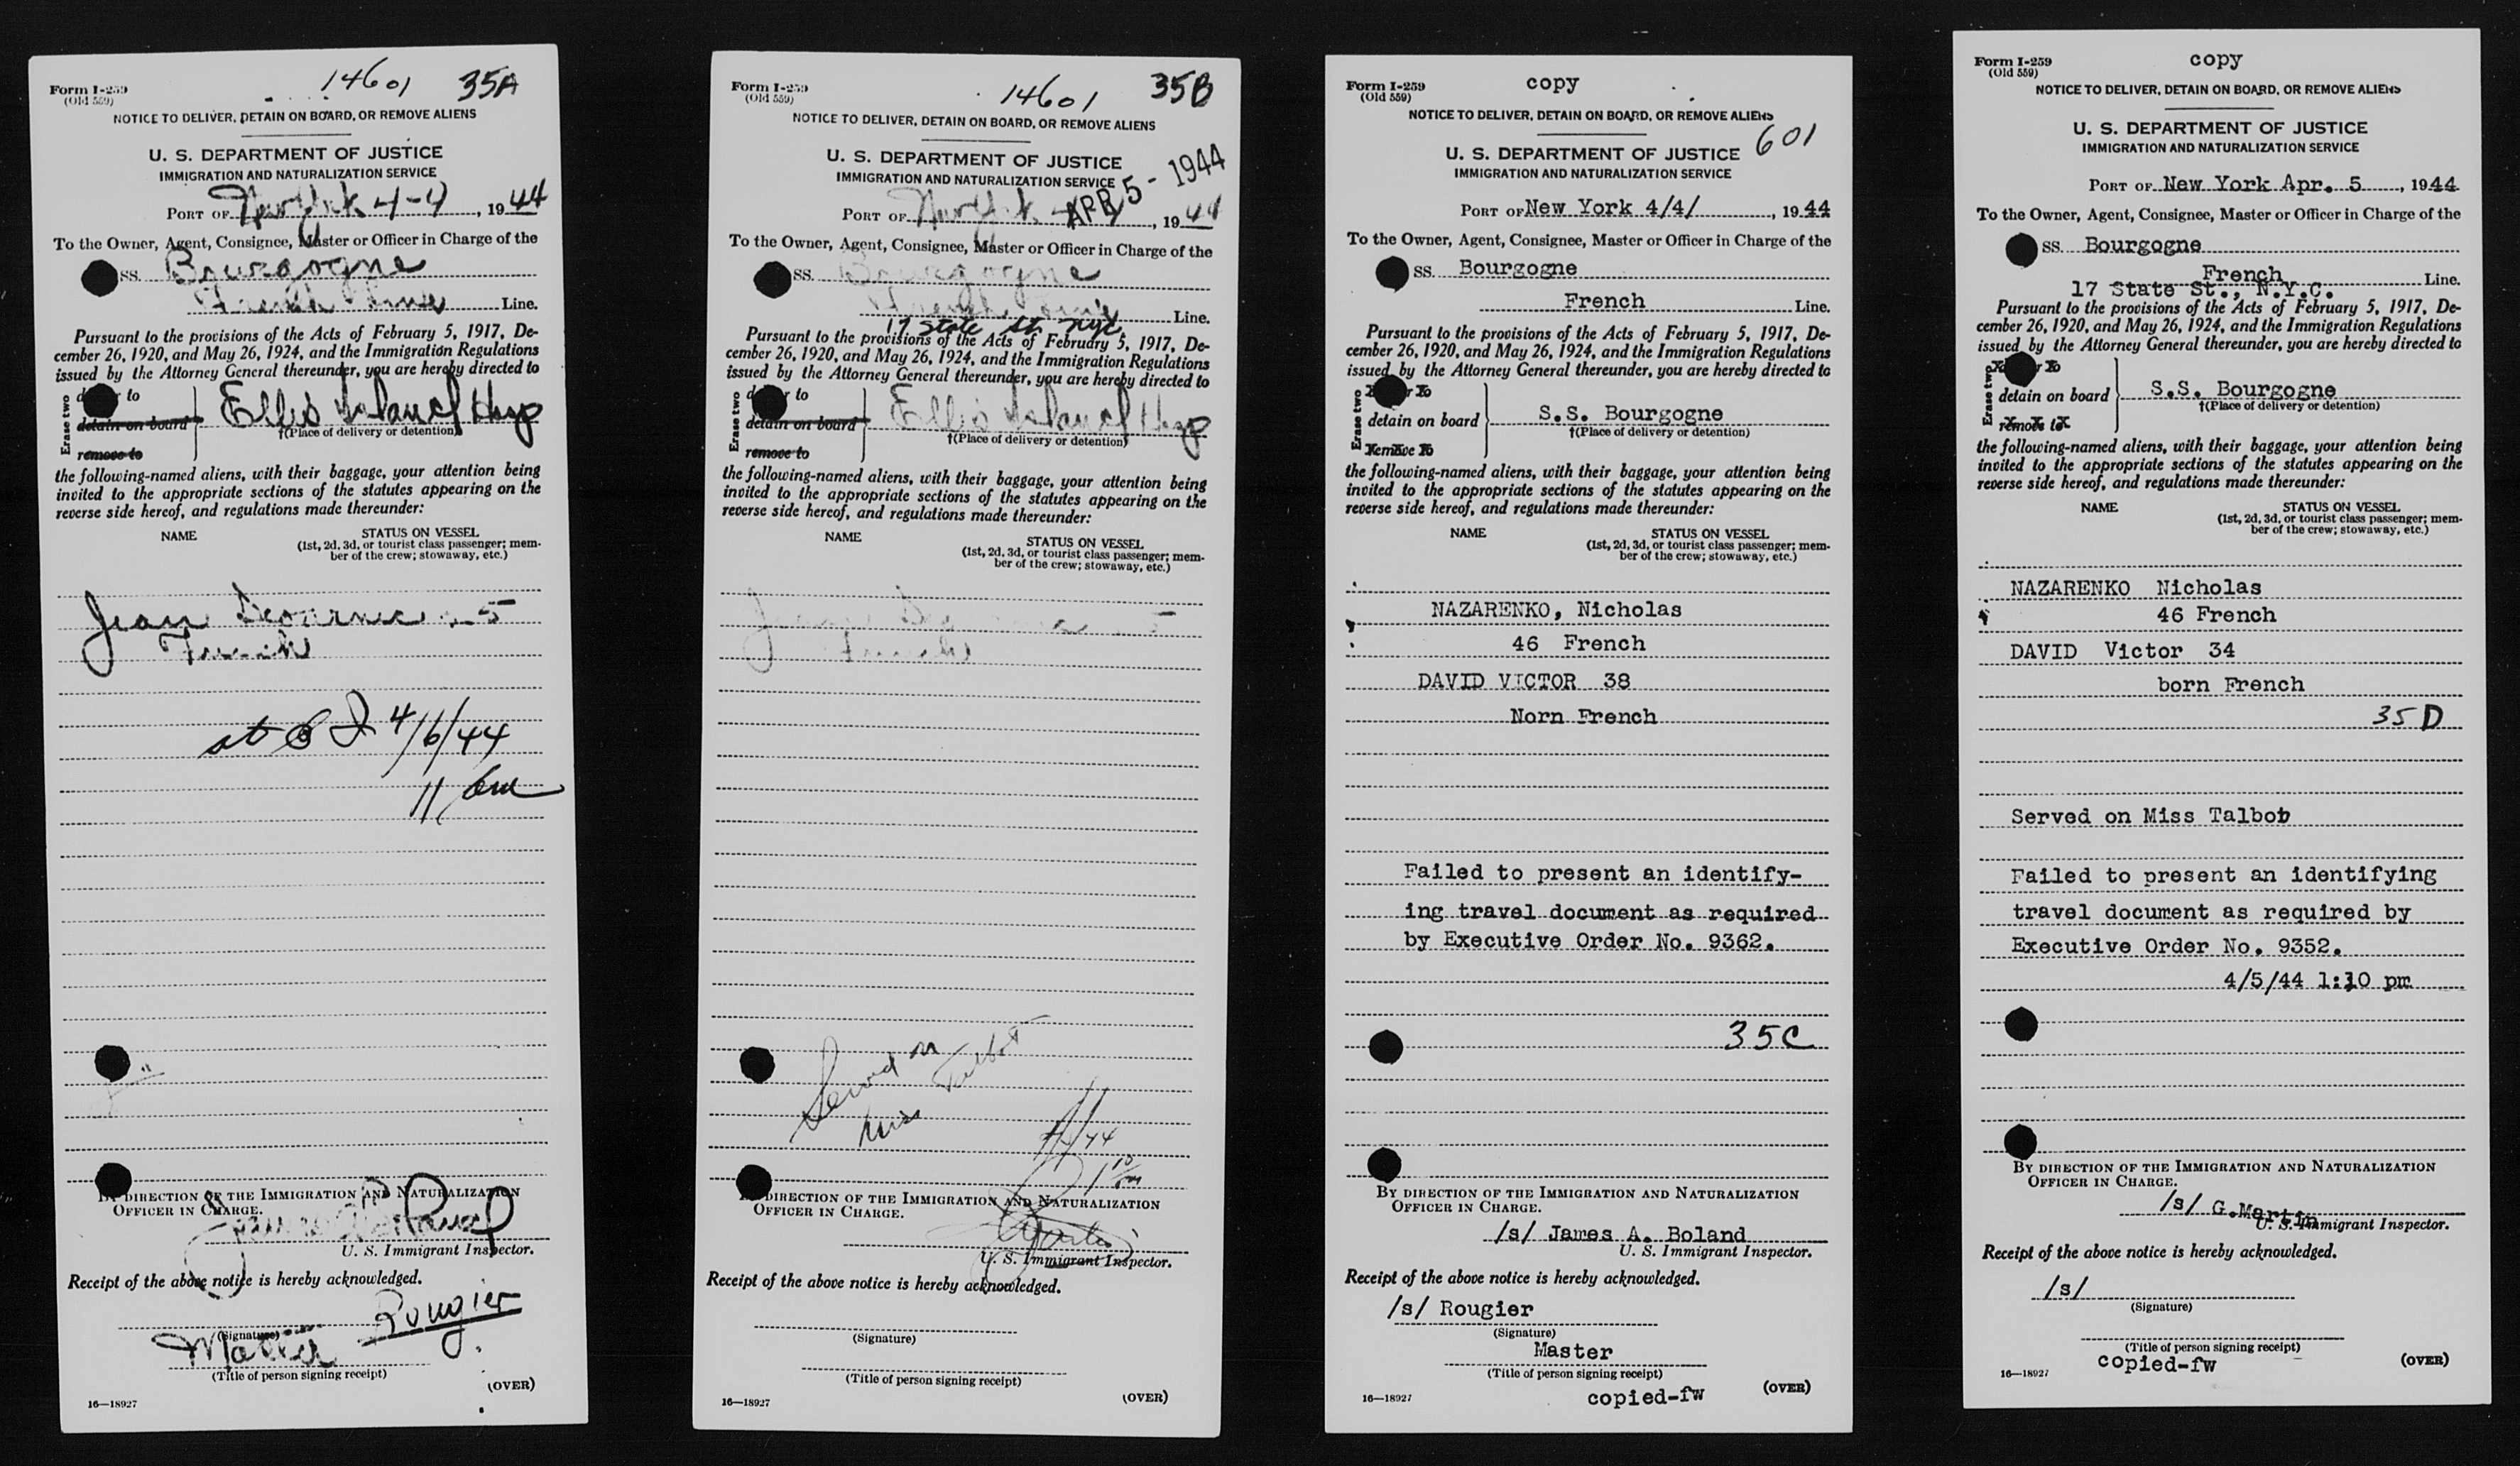 14601 35A
Form I-259
(Old 559)
NOTICE TO DELIVER, DETAIN ON BOARD, OR REMOVE ALIENS
U. S. DEPARTMENT OF JUSTICE
IMMIGRATION AND NATURALIZATION SERVICE
PORT OF New York 4-4, 1944
To the Owner, Agent, Consignee, Master or Officer in Charge of the
SS. Bourgogne
French Line.
Pursuant to the provisions of the Acts of February 5, 1917, De-
cember 26, 1920, and May 26, 1924, and the Immigration Regulations
issued by the Attorney General thereunder, you are hereby directed to
Erase two
to
detain on board
remove to
Ellis Island Hosp
†(Place of delivery or detention)
the following-named aliens, with their baggage, your attention being
invited to the appropriate sections of the statutes appearing on the
reverse side hereof, and regulations made thereunder:
NAME STATUS ON VESSEL
(1st, 2d, 3d, or tourist class passenger; mem-
ber of the crew; stowaway, etc.)
Jean
French
at E I 4/6/44
11
BY DIRECTION OF THE IMMIGRATION AND NATURALIZATION
OFFICER IN CHARGE.
James A Boland
U. S. Immigrant Inspector.
Receipt of the above notice is hereby acknowledged.
Rougier
(Signature)
Master
(Title of person signing receipt)
(OVER)
16—18927
14601 35B
Form I-259
(Old 559)
NOTICE TO DELIVER, DETAIN ON BOARD, OR REMOVE ALIENS
U. S. DEPARTMENT OF JUSTICE
IMMIGRATION AND NATURALIZATION SERVICE
APR 5 - 1944
PORT OF New York, 1944
To the Owner, Agent, Consignee, Master or Officer in Charge of the
SS. Bourgogne
French Line.
17 State St. NYC
Pursuant to the provisions of the Acts of February 5, 1917, De-
cember 26, 1920, and May 26, 1924, and the Immigration Regulations
issued by the Attorney General thereunder, you are hereby directed to
Erase two
to
detain on board
remove to
Ellis Island Hosp
†(Place of delivery or detention)
the following-named aliens, with their baggage, your attention being
invited to the appropriate sections of the statutes appearing on the
reverse side hereof, and regulations made thereunder:
NAME STATUS ON VESSEL
(1st, 2d, 3d, or tourist class passenger; mem-
ber of the crew; stowaway, etc.)
Jean
French
Served on
Miss Talbot
1 10 pm
BY DIRECTION OF THE IMMIGRATION AND NATURALIZATION
OFFICER IN CHARGE.
G Martin
U. S. Immigrant Inspector.
Receipt of the above notice is hereby acknowledged.
(Signature)
(Title of person signing receipt)
(OVER)
16—18927
copy
Form I-259
(Old 559)
NOTICE TO DELIVER, DETAIN ON BOARD, OR REMOVE ALIENS
601
U. S. DEPARTMENT OF JUSTICE
IMMIGRATION AND NATURALIZATION SERVICE
PORT OF New York 4/4/, 1944
To the Owner, Agent, Consignee, Master or Officer in Charge of the
SS. Bourgogne
French Line.
Pursuant to the provisions of the Acts of February 5, 1917, De-
cember 26, 1920, and May 26, 1924, and the Immigration Regulations
issued by the Attorney General thereunder, you are hereby directed to
Erase two
detain on board
remove to
S.S. Bourgogne
†(Place of delivery or detention)
the following-named aliens, with their baggage, your attention being
invited to the appropriate sections of the statutes appearing on the
reverse side hereof, and regulations made thereunder:
NAME STATUS ON VESSEL
(1st, 2d, 3d, or tourist class passenger; mem-
ber of the crew; stowaway, etc.)
NAZARENKO, Nicholas
46 French
DAVID VICTOR 38
Norn French
Failed to present an identify-
ing travel document as required
by Executive Order No. 9362.
35C
BY DIRECTION OF THE IMMIGRATION AND NATURALIZATION
OFFICER IN CHARGE.
/s/ James A. Boland
U. S. Immigrant Inspector.
Receipt of the above notice is hereby acknowledged.
/s/ Rougier
(Signature)
Master
(Title of person signing receipt)
16—18927 copied-fw (OVER)
copy
Form I-259
(Old 559)
NOTICE TO DELIVER, DETAIN ON BOARD, OR REMOVE ALIENS
U. S. DEPARTMENT OF JUSTICE
IMMIGRATION AND NATURALIZATION SERVICE
PORT OF New York Apr. 5, 1944
To the Owner, Agent, Consignee, Master or Officer in Charge of the
SS. Bourgogne
French Line.
17 State St., N.Y.C.
Pursuant to the provisions of the Acts of February 5, 1917, De-
cember 26, 1920, and May 26, 1924, and the Immigration Regulations
issued by the Attorney General thereunder, you are hereby directed to
Erase two
detain on board
remove to
S.S. Bourgogne
†(Place of delivery or detention)
the following-named aliens, with their baggage, your attention being
invited to the appropriate sections of the statutes appearing on the
reverse side hereof, and regulations made thereunder:
NAME STATUS ON VESSEL
(1st, 2d, 3d, or tourist class passenger; mem-
ber of the crew; stowaway, etc.)
NAZARENKO Nicholas
46 French
DAVID Victor 34
born French
35D
Served on Miss Talbot
Failed to present an identifying
travel document as required by
Executive Order No. 9352.
4/5/44 1:10 pm
BY DIRECTION OF THE IMMIGRATION AND NATURALIZATION
OFFICER IN CHARGE.
/s/ G.Martin
U. S. Immigrant Inspector.
Receipt of the above notice is hereby acknowledged.
/s/
(Signature)
(Title of person signing receipt)
16—18927 copied-fw (OVER)